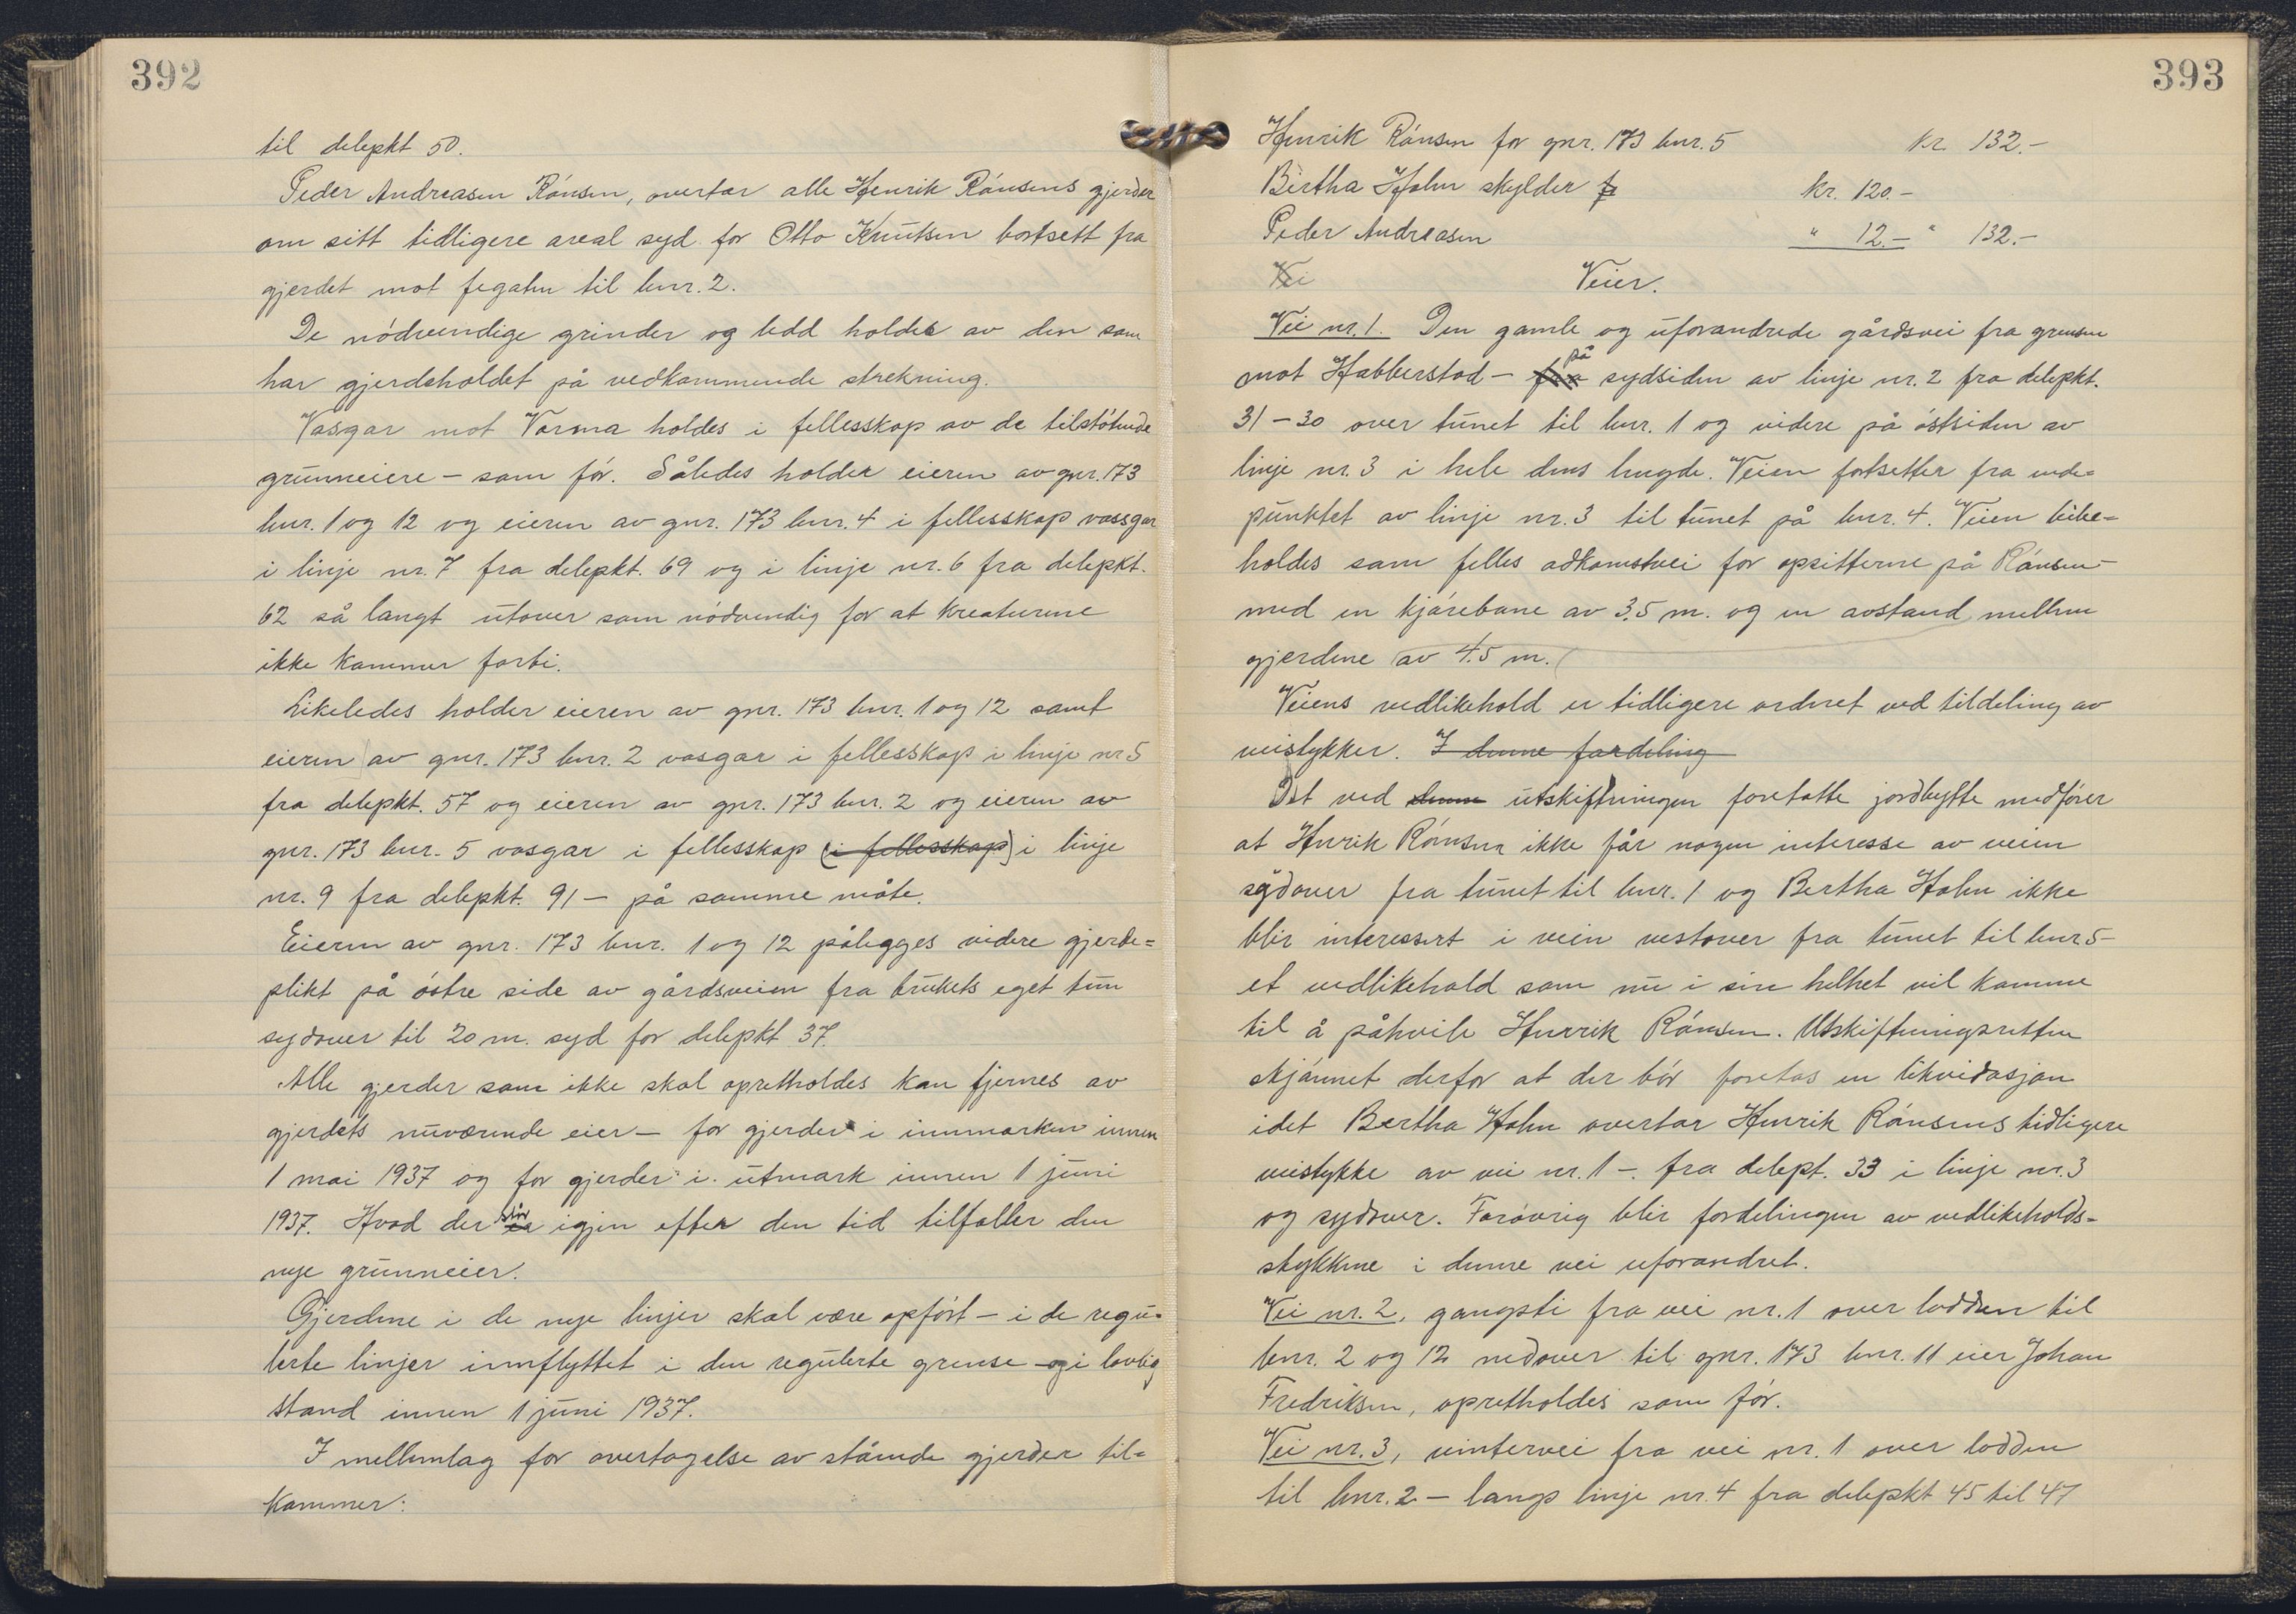 392
til delepkt 50.
Peder Andreasen Rånsen, overtar alle Henrik Rånsens gjerder
om sitt tidligere areal syd for Otto Knutsen bortsett fra
gjerdet mot fegaten til bnr. 2.
De nödvendige grinder og ledd holdes av den som
har gjerdeholdet på vedkommende strekning.
Vasgar mot Vorma holdes i fellesskap av de tilstötende
grunneiere - som för. Således holder eieren av gnr. 173
bnr. 1 og 12 og eieren av gnr. 173 bnr. 4 i fellesskap vassgar
i linje nr. 7 fra delepkt. 69 og i linje nr. 6 fra delepkt.
62 så langt utover som nödvendig for at kreaturene
ikke kommer forbi.
Likeledes holder eieren av gnr. 173 bnr. 1 og 12 samt
eieren av gnr. 173 bnr. 2 vasgar i fellesskap i linje nr 5
fra delepkt. 57 og eieren av gnr. 173 bnr. 2 og eieren av
gnr. 173 bnr. 5 vasgar i fellesskap (i fellesskap) i linje
nr. 9 fra delepkt. 91 - på samme måte.
Eieren av gnr. 173 bnr. 1 og 12 pålegges videre gjerde=
plikt på östre side av gårdsveien fra brukets eget tun
sydover til 20 m. syd for delepkt 37.
Alle gjerder som ikke skal opretholdes kan fjernes av
gjerdets nuværende eier - for gjerder i innmarken innen
1 mai 1937 og for gjerder i utmark innen 1 juni
1937. Hvad der står er igjen efter den tid tilfaller den
nye grunneier.
Gjerdene i de nye linjer skal være opfört - i de regu=
lerte linjer innflyttet i den regulerte grense - og i lovlig
stand innen 1 juni 1937.
I mellemlag for overtagelse av stående gjerder til=
kommer:
393
Henrik Rånsen for gnr. 173 bnr. 5 kr. 132.-
Bertha Holm skylder f kr. 120.-
Peder Andreasen " 12.- " 132.-
Vei Veier.
Vei nr. 1. Den gamle og uforandrede gårdsvei fra grensen
mot Habberstad - fra på sydsiden av linje nr. 2 fra delepkt.
31 - 30 over tunet til bnr. 1 og videre på östsiden av
linje nr. 3 i hele dens lengde. Veien fortsetter fra ende=
punktet av linje nr. 3 til tunet på bnr. 4. Veien bibe=
holdes som felles adkomstvei for opsitterne på Rånsen -
med en kjörebane av 3,5 m. og en avstand mellem
gjerdene av 4.5 m.
Veiens vedlikehold er tidligere ordnet ved tildeling av
veistykker. I denne fordeling
Det ved denne utskiftningen foretatte jordbytte medförer
at Henrik Rånsen ikke får nogen interesse av veien
sydover fra tunet til bnr. 1 og Bertha Holm ikke
blir interessert i veien vestover fra tunet til bnr 5 -
et vedlikehold som nu i sin helhet vil komme
til å påhvile Henrik Rånsen. Utskiftningsretten
skjönnet derfor at der bör foretas en likvidasjon
idet Bertha Holm overtar Henrik Rånsens tidligere
veistykke av vei nr. 1 - fra delept. 33 i linje nr. 3
og sydover. Forövrig blir fordelingen av vedlikeholds=
stykkene i denne vei uforandret.
Vei nr. 2, gangsti fra vei nr. 1 over lodden til
bnr. 2 og 12 nedover til gnr. 173 bnr. 11 eier Johan
Fredriksen, opretholdes som för.
Vei nr. 3, vintervei fra vei nr. 1 over lodden
til bnr. 2 - langs linje nr. 4 fra delepkt 45 til 47